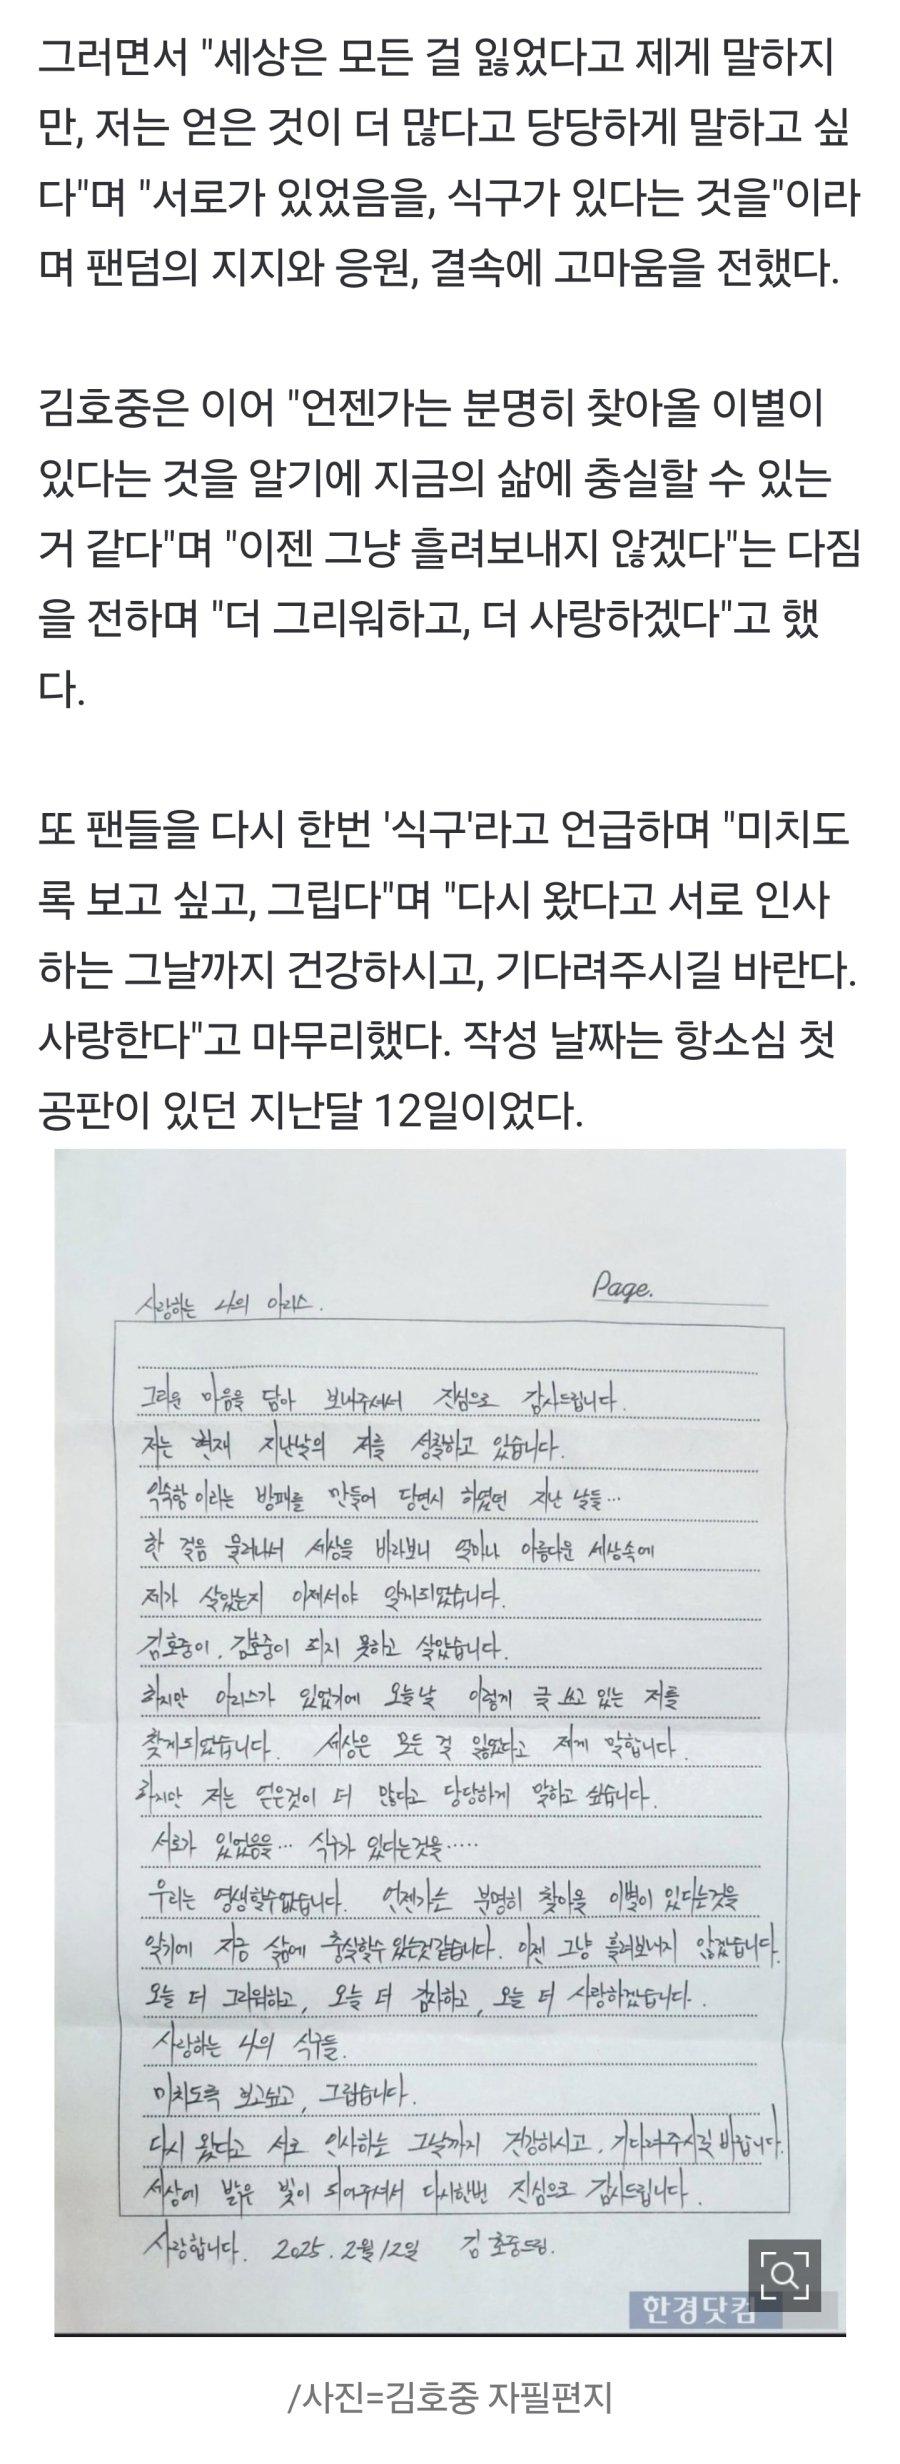 그러면서 "세상은 모든 걸 잃었다고 제게 말하지
만, 저는 얻은 것이 더 많다고 당당하게 말하고 싶
다"며 "서로가 있었음을, 식구가 있다는 것을"이라
며 팬덤의 지지와 응원, 결속에 고마움을 전했다.
김호중은 이어 "언젠가는 분명히 찾아올 이별이
있다는 것을 알기에 지금의 삶에 충실할 수 있는
거 같다"며 "이젠 그냥 흘려보내지 않겠다"는 다짐
을 전하며 "더 그리워하고, 더 사랑하겠다"고 했
다.
또 팬들을 다시 한번 '식구'라고 언급하며 "미치도
록 보고 싶고, 그립다"며 "다시 왔다고 서로 인사
하는 그날까지 건강하시고, 기다려주시길 바란다.
사랑한다"고 마무리했다. 작성 날짜는 항소심 첫
공판이 있던 지난달 12일이었다.
Page.
사랑하는 나의 아리스.
그리운 마음을 담아 보내주셔서 진심으로 감사드립니다.
저는 현재 지난날의 저를 성찰하고 있습니다.
익숙함 이라는 방패를 만들어 당연시 하였던 지난 날들…
한 걸음 물러나서 세상을 바라보니 얼마나 아름다운 세상속에
제가 살았는지 이제서야 알게되었습니다.
김호중이, 김호중이 되지 못하고 살았습니다.
하지만 아리스가 있었기에 오늘날 이렇게 글 쓰고 있는 저를
찾게되었습니다. 세상은 모든 걸 잃었다고 제게 말합니다.
하지만 저는 얻은것이 더 많다고 당당하게 말하고 싶습니다.
서로가 있었음을… 식구가 있다는것을……
우리는 영생할수없습니다. 언젠가는 분명히 찾아올 이별이 있다는것을
알기에 지금 삶에 충실할수 있는것같습니다. 이젠 그냥 흘려보내지 않겠습니다.
오늘 더 그리워하고, 오늘 더 감사하고, 오늘 더 사랑하겠습니다.
사랑하는 나의 식구들.
미치도록 보고싶고, 그립습니다.
다시 왔다고 서로 인사하는 그날까지 건강하시고, 기다려주시길 바랍니다.
세상에 밝은 빛이 되어주셔서 다시한번 진심으로 감사드립니다.
사랑합니다. 2025. 2월 12일 김호중드림.
한경닷컴
/사진=김호중 자필편지